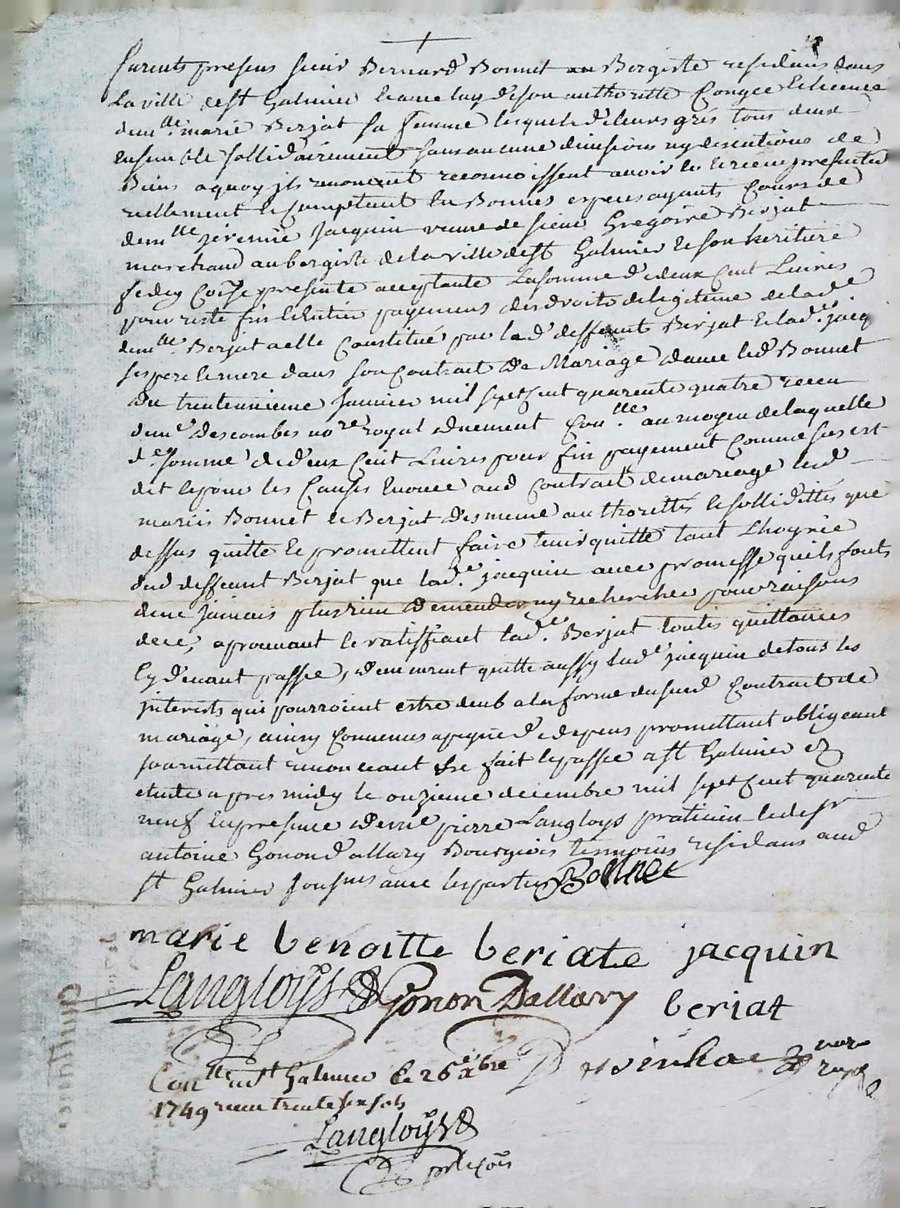 furent presens sieur Bernard Bonnet au Bergiste residant dans
La ville de st Galmier & de luy d'hson authorité Congée & licence
demlle. marie Berjat sa femme lesquels de leurs grés tous deux
Ensemble sollidairement sans aucune divisions ny discutions de
Biens a quoy jls renoncent reconnoissent avoir eu & receu presentem
reellement & Comptent En Bonnes especes ayants Cours de
demlle jeremie jacquin veuve de sieur Gregoire Berjat
marchand aubergiste de la ville de st Galmier & son heritiere
presente acceptante La somme de deux Cent Livres
pour reste fin & Entier payement des droits de legitime de lade
demlle. Berjat a elle Constitué par led deffeunt Berjat & lade. jacq
ses pere & mere dans son Contract De Mariage d'avec led Bonnet
Du trenteunieme Janvier mil sept cent quarente quatre receu
de me Descombes nore royal duement Conlle. au moyen de laquelle
de somme de deux Cent Livres pour fin payement Comme sus est
dit & pour les Causes Enoncé aud Contract de mariage lesd
mariés Bonnet & Berjat des meme authorittés & sollidittés que
dessus quitte & promettent faire tenir quitte tant L'hoyrie
dud deffeunt Berjat que lade. jacquin avec promesse qu'ils fonts
de ne jamais plus rien demender ny rechercher pour raisons
de ce, aprouvant & ratiffiant lade. Berjat toutes quittances
Cy devant passée, demeurent quitte aussy lade jacquin de tous les
interests qui pourroient estre deub a la forme dusud Contract de
mariage, ainsy Convenus a peyne de depens promettant obligeant
soumettant renonceant &c fait & passé a st Galmier Ez
etude apres midy le onzieme decembre mil sept Cent quarente
neuf En presence de me pierre Langloys praticien & de sr
antoine Gonon d'allary Bourgeois temoins residans aud
st Galmier sousnés avec les parties Bonnet
marie benoitte beriate jacquin
Langloys Gonon Dallary beriat
Conlle a st Galmier le 26e xbre nore
1749 receu trente six sols
Langloys